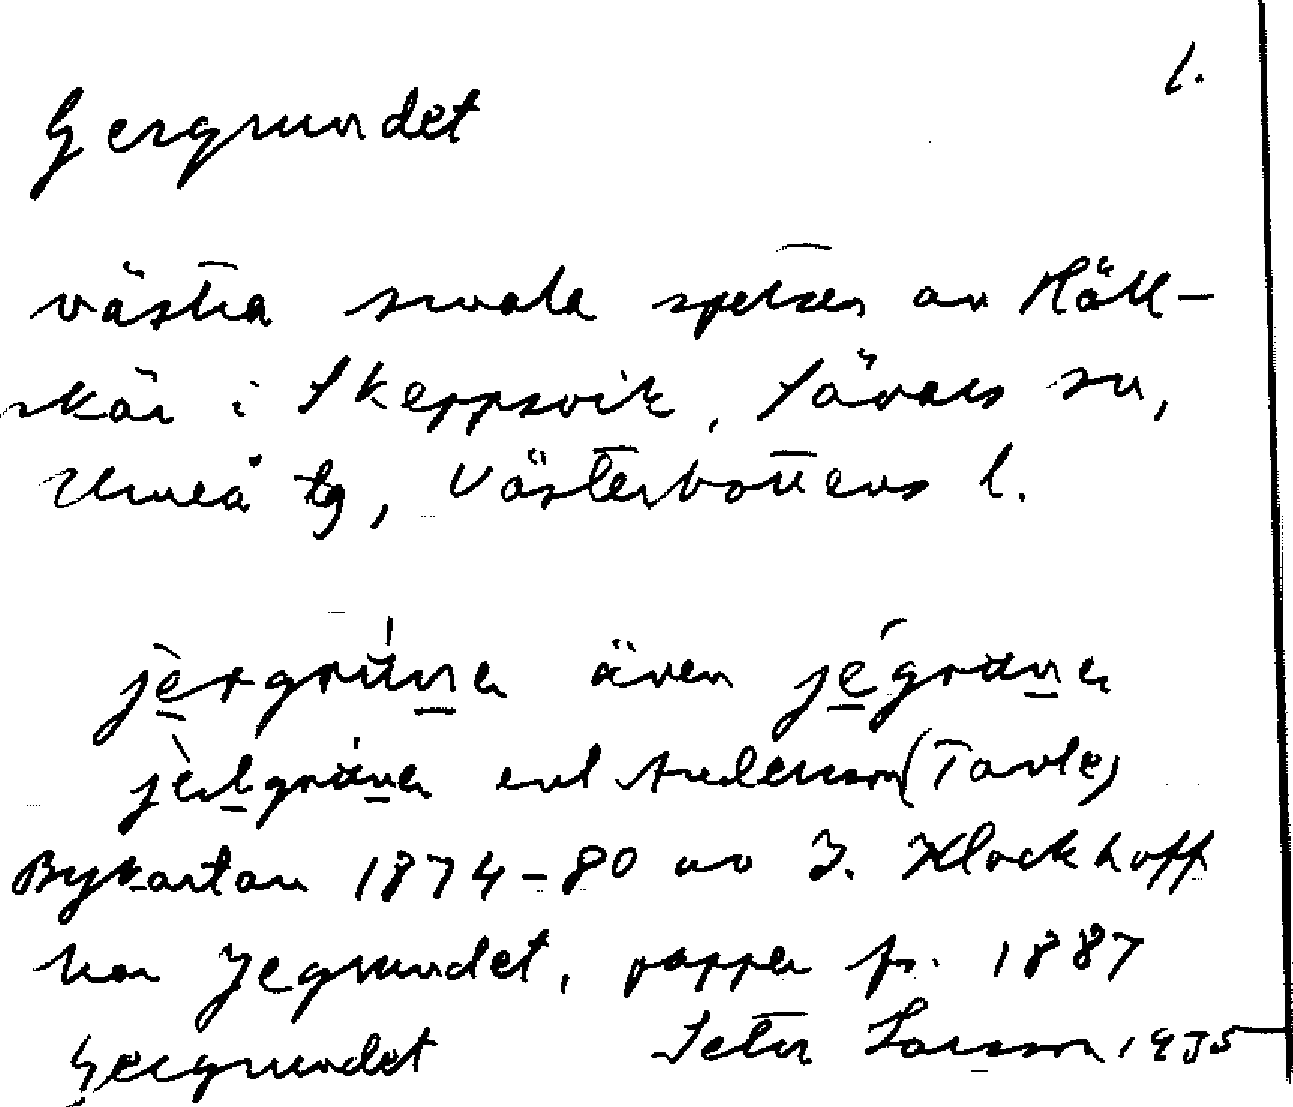 1.
Gergrundet
västra smala spetsen av Häll-
skär i Skeppsvik, Sävars sn,
Umeå tg, Västerbottens l.
även
enl Andersson (Tavle)
Bykartan 1874-80 av J. Klockhoff
har Jegrundet, papper fr. 1887
Gergrundet Seth Larsson 1935